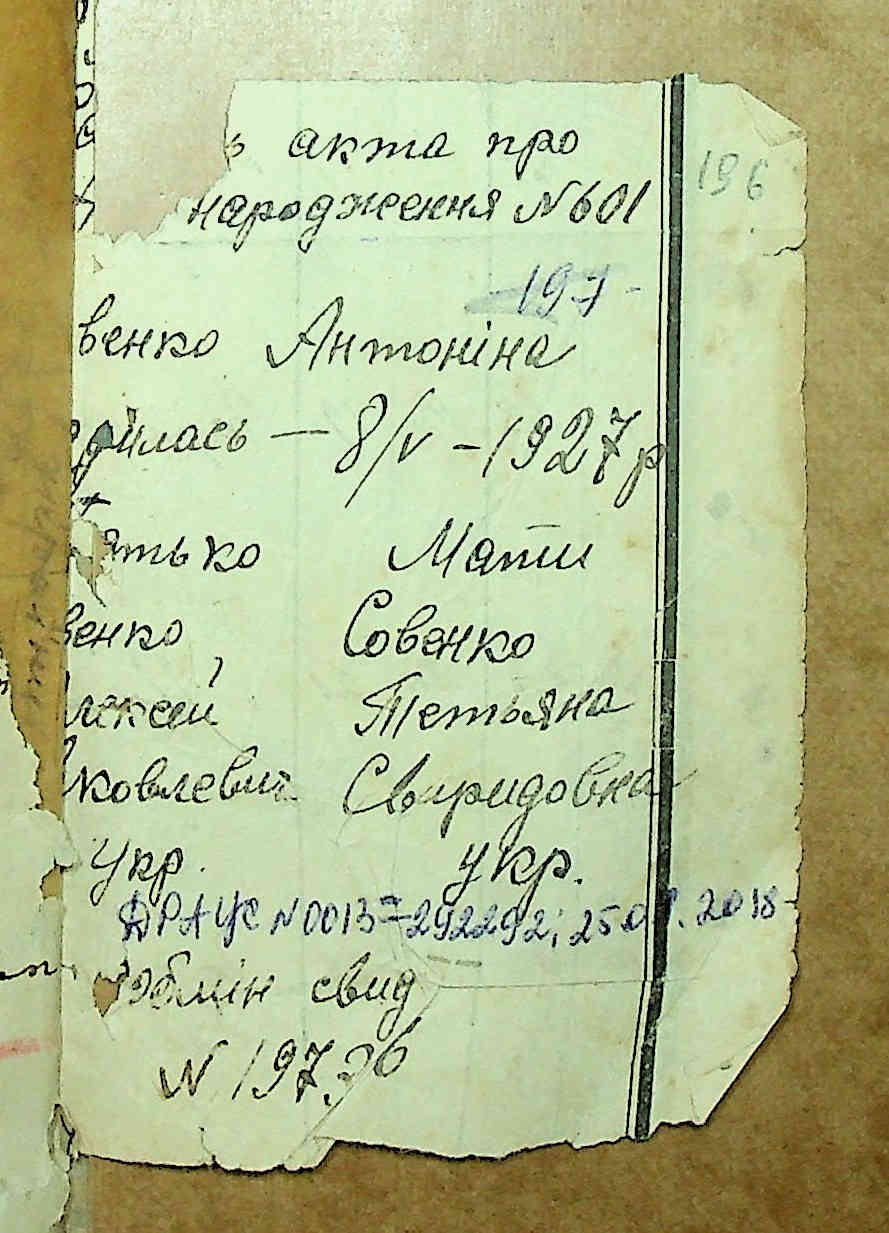 ь акта про
196
народження №601
-197-
венко Антоніна
дилась — 8/V – 1927 р
батько Мати
венко Совенко
лексей Тетьяна
Яковлевич Свиридовна
укр. укр.
ДРАЦС №0013-292292; 25.01.2018
обмін свид
№ 197.36